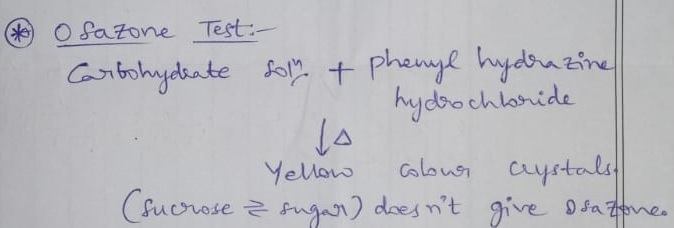 * Osazone Test:-
Carbohydrate solⁿ + phenyl hydrazine
hydrochloride
↓Δ
Yellow colour crystals.
(sucrose ⇌ sugar) doesn't give Osazone.